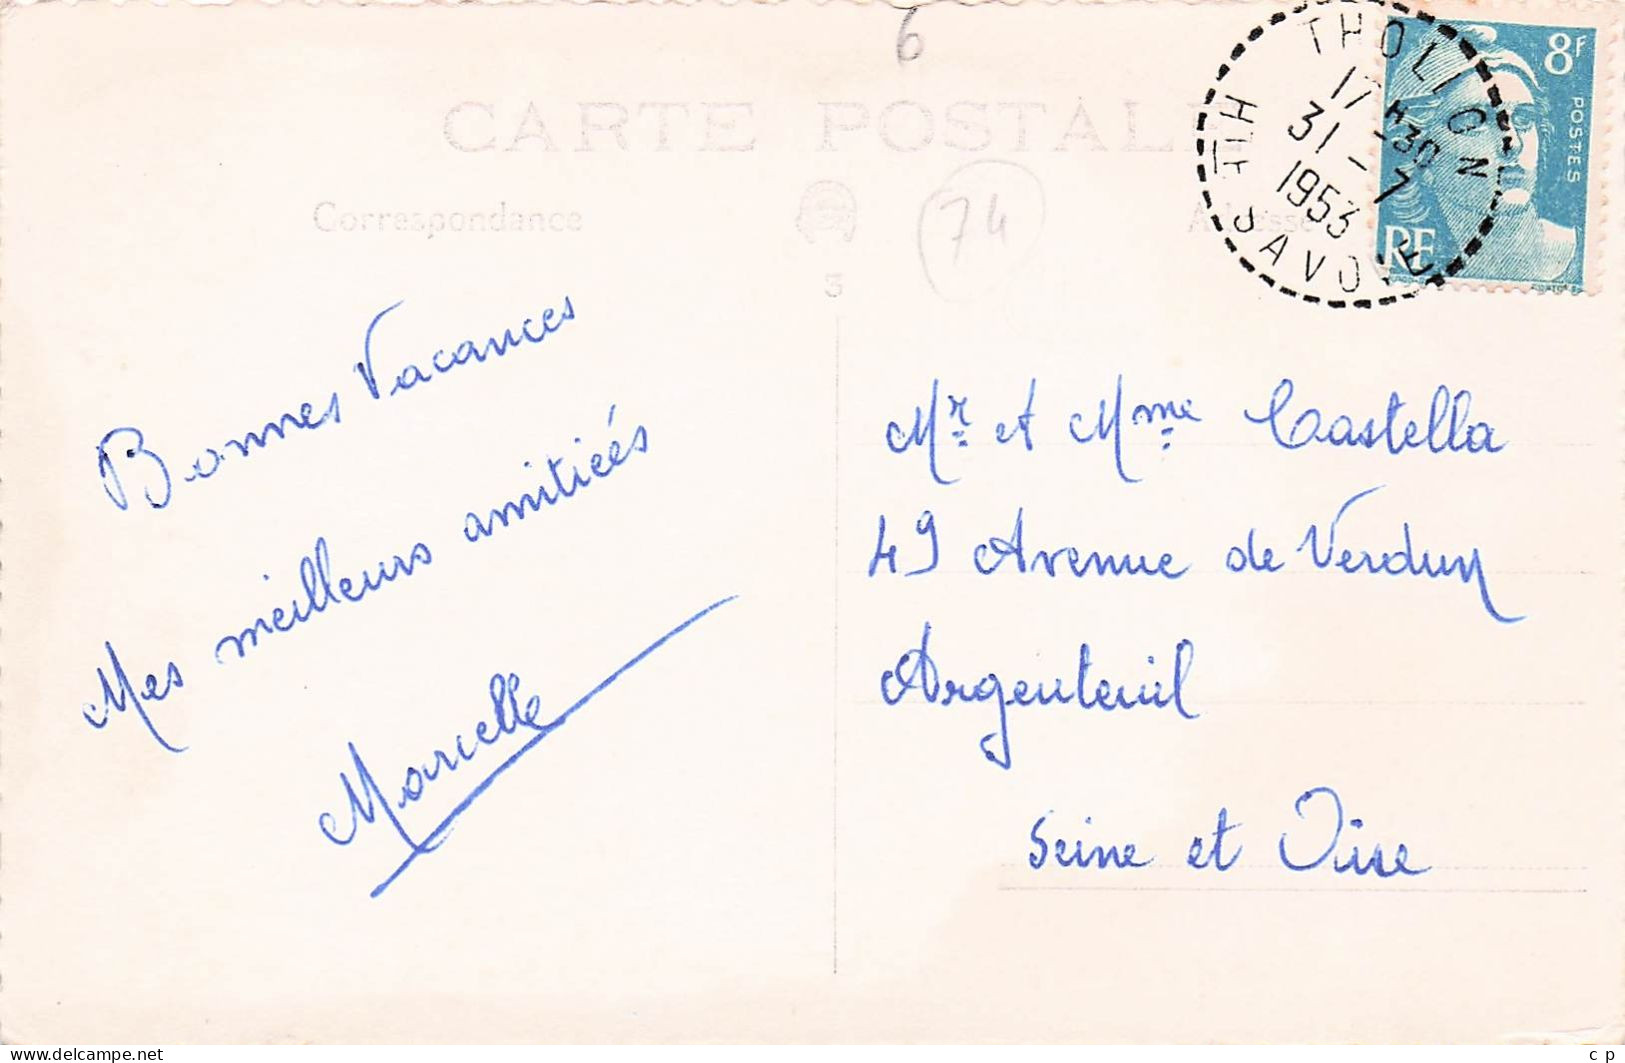 6
CARTE POSTALE
Correspondance
74
3
THOLLON
HTE SAVOIE
17H30
31-7
1953
8F
POSTES
RF
Bonnes Vacances
Mes meilleurs amitieés
Marcelle
Mr et Mme Castella
49 Avenue de Verdun
Argenteuil
Seine et Oise
delcampe.net
c p